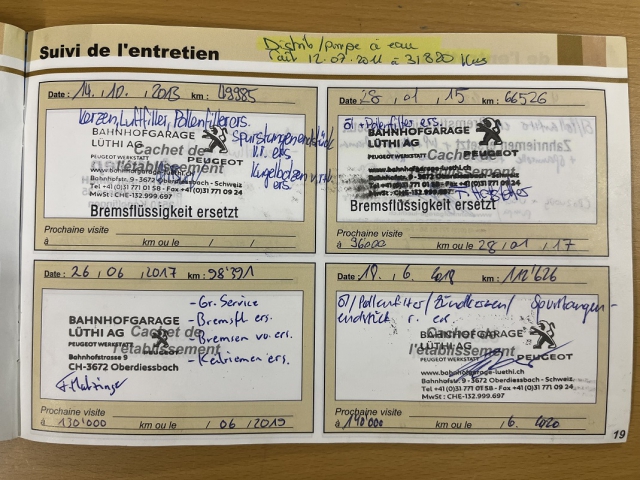 Suivi de l'entretien
Distrib/pompe à eau
fait 12.07.2011 à 31'820 Kms
Date : 14. 10. 2013 km : 49985
Kerzen, Luftfilter, Pollenfilter ers.
Spurstangenendstück
ers
Kugelbolzen
ers.
BAHNHOFGARAGE
LÜTHI AG
Cachet de
l'établissement
PEUGEOT WERKSTATT
PEUGEOT
www.bahnhofgarage-luethi.ch
Bahnhofstr. 9 - 3672 Oberdiessbach - Schweiz
Tel +41 (0)31 771 01 58 - Fax +41 (0)31 771 09 24
MwSt : CHE-132.999.697
Bremsflüssigkeit ersetzt
Prochaine visite
à km ou le / /
Date : 28, 01, 15 km : 66526
Öl + Pollenfilter ers
BAHNHOFGARAGE
LÜTHI AG
Cachet de
l'établissement
PEUGEOT WERKSTATT
PEUGEOT
Bahnhofstr. 9 - 3672 Oberdiessbach - Schweiz
Tel +41 (0)31 771 01 58 - Fax +41 (0)31 771 09 24
MwSt : CHE-132.999.697
Bremsflüssigkeit ersetzt
Prochaine visite
à 96000 km ou le 28 / 01 / 17
Date : 26, 06, 2017 km : 98'391
- Gr. Service
- Bremsfl ers.
- Bremsen vo. ers.
- Keilriemen ers.
BAHNHOFGARAGE
LÜTHI AG
Cachet de
l'établissement
PEUGEOT WERKSTATT
PEUGEOT
Bahnhofstrasse 9
CH-3672 Oberdiessbach
Prochaine visite
à 130'000 km ou le / 06 / 2019
Date : 18. 6. 2018 km : 112'626
Öl/Pollenfilter/Zündkerzen/ Spurstangen-
endstück r. ers.
BAHNHOFGARAGE
LÜTHI AG
Cachet de
l'établissement
PEUGEOT WERKSTATT
PEUGEOT
www.bahnhofgarage-luethi.ch
Bahnhofstr. 9 - 3672 Oberdiessbach - Schweiz
Tel +41 (0)31 771 01 58 - Fax +41 (0)31 771 09 24
MwSt : CHE-132.999.697
Prochaine visite
à 140'000 km ou le / 6. / 2020
19